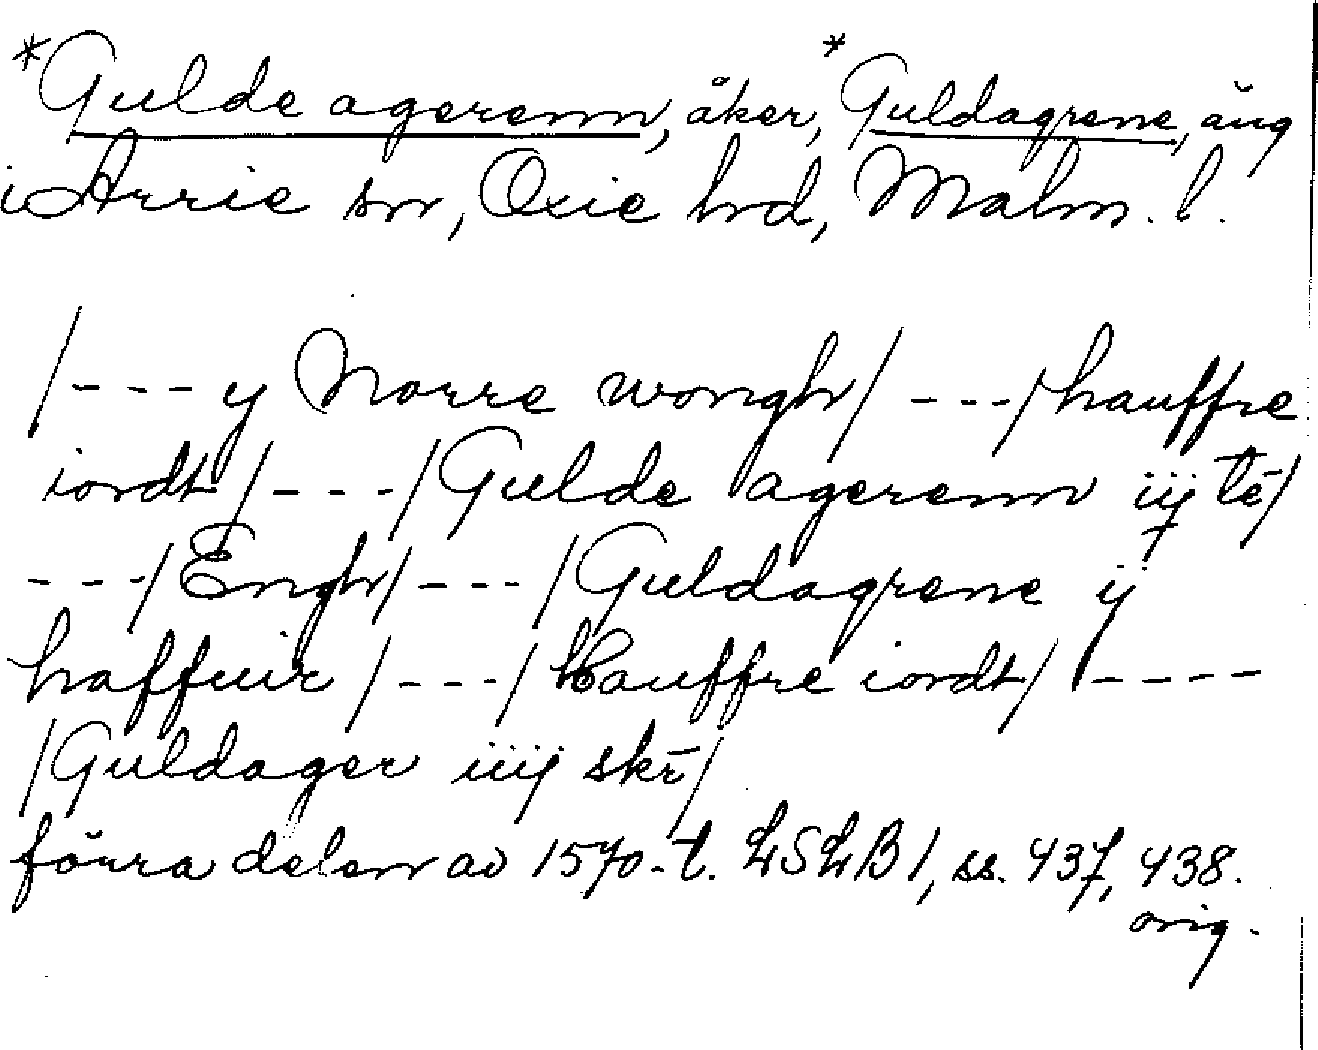 *Gulde agerenn, åker, *Guldagrene, äng
i Arrie sn, Oxie hrd, Malm. l.
/--- y Norre wongh/ ---/hauffre
iordt/---/Gulde agerenn iij te/
---/Engh/---/Guldagrene ij
haffuir/---/Hauffre iordt/----
/Guldager iiij skr/
förra delen av 1570-t. LSLB 1, ss. 437, 438.
orig.